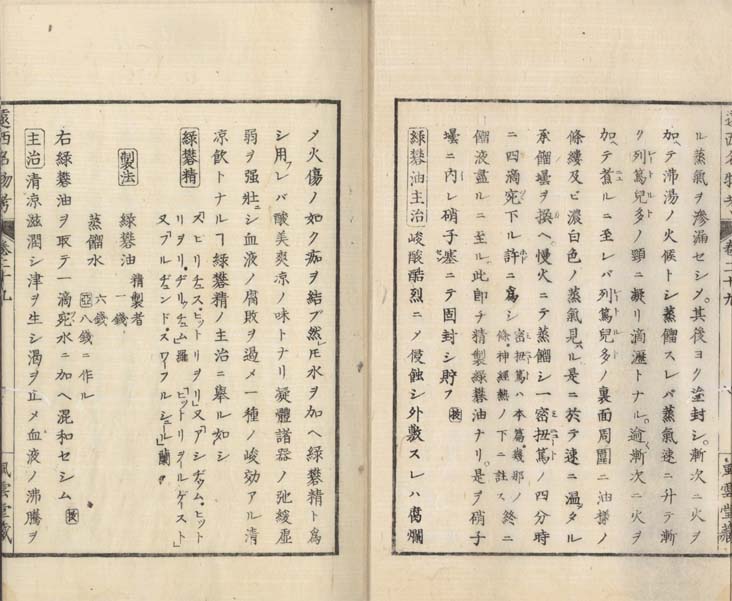 ル蒸氣ヲ滲漏セシメ。其後ヨク塗封シ。漸次ニ火ヲ
加ヘテ沸湯ノ火候トシ蒸餾スレバ蒸氣速ニ升テ漸
ク列篤兒多ノ頸ニ凝リ滴瀝トナル。逾漸次ニ火ヲ
加ヘテ煮ルニ至レバ列篤兒多ノ裏面周圍ニ油樣ノ
條縷及ビ濃白色ノ蒸氣見ハル是ニ於テ速ニ温タル
承餾罌ヲ換ヘ慢火ニテ蒸餾シ一密扭篤ノ四分時
ニ四滴宛下ル許ニ爲シ
密扭篤ハ本篇幾那ノ
條神經熱ノ下ニ註ス
終ニ
餾液盡ルニ至ル此即チ精製綠礬油ナリ。是ヲ硝子
罎ニ内レ硝子塞ニテ固封シ貯フ
綠礬油主治 峻酸酷烈ニメ侵蝕シ外敷スレハ腐爛
遠西名物考 卷二十九
風雲堂藏
メ火傷ノ如ク痂ヲ結ブ然ㇾ𪜈水ヲ加ヘ綠礬精ト爲
シ用フレバ酸美爽凉ノ味トナリ凝體諸器ノ弛緩虛
弱ヲ強壯ニシ血液ノ腐敗ヲ遏メ一種ノ峻効アル清
凉飲トナルヿ綠礬精ノ主治ニ舉ル如シ
綠礬精
製法
綠礬油 精製者 一錢
蒸餾水 六錢 亞八錢ニ作ル
右綠礬油ヲ取テ一滴宛水ニ加ヘ混和セシム
主治 清凉滋潤シ津ヲ生シ渴ヲ止メ血液ノ沸騰ヲ
遠西名物考 卷二十九
風雲堂藏